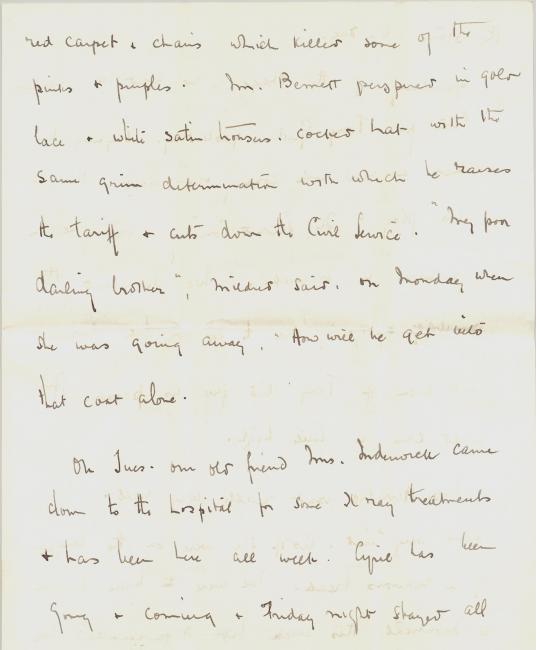 red carpet & chairs which killed some of the
pinks & purples. Mr. Bennett perspired in gold
lace & white satin trousers. cocked hat with the
same grim determination with which he raises
the tariff & cuts down the Civil Service. "My poor
darling brother", Mildred said, on Monday when
she was going away, "How will he get into
that coat alone.
On Tues. our old friend Mrs. Indewick came
down to the hospital for some X ray treatments
& has been here all week. Cyril has been
going & coming & Friday night stayed all